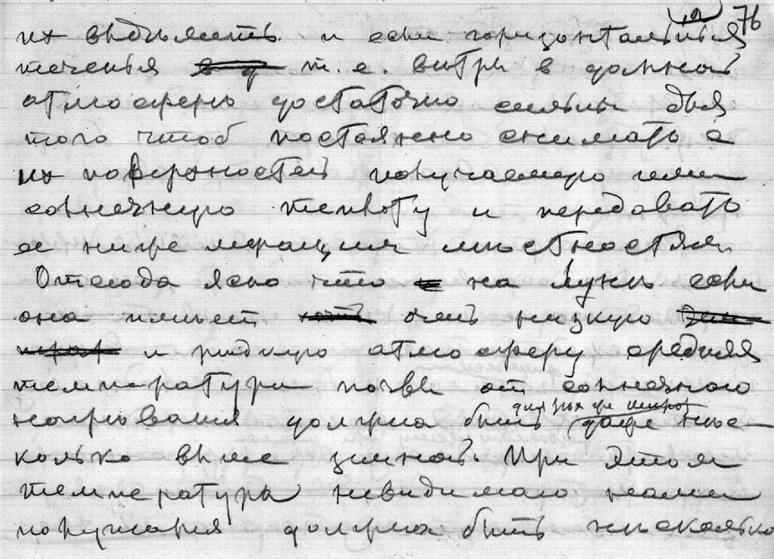 76
их и если горизонтальныя
теченья т.е. вѣтры в данной
атмосферѣ достаточно сильны для
того чтоб постоянно снимать с
их поверхностей получаемую ими
солнечную теплоту и передовать
ее ниже лежащим мѣстностям
Отсюда ясно что на Лунѣ если
она имѣет очень низкую
и рѣдкую атмосферу средняя
температура почвы от солнечного
нагрѣвания должна быть даже нѣс-
колько выше земной При этом
температура невидимаго нами
полушария должна быть нѣсколько